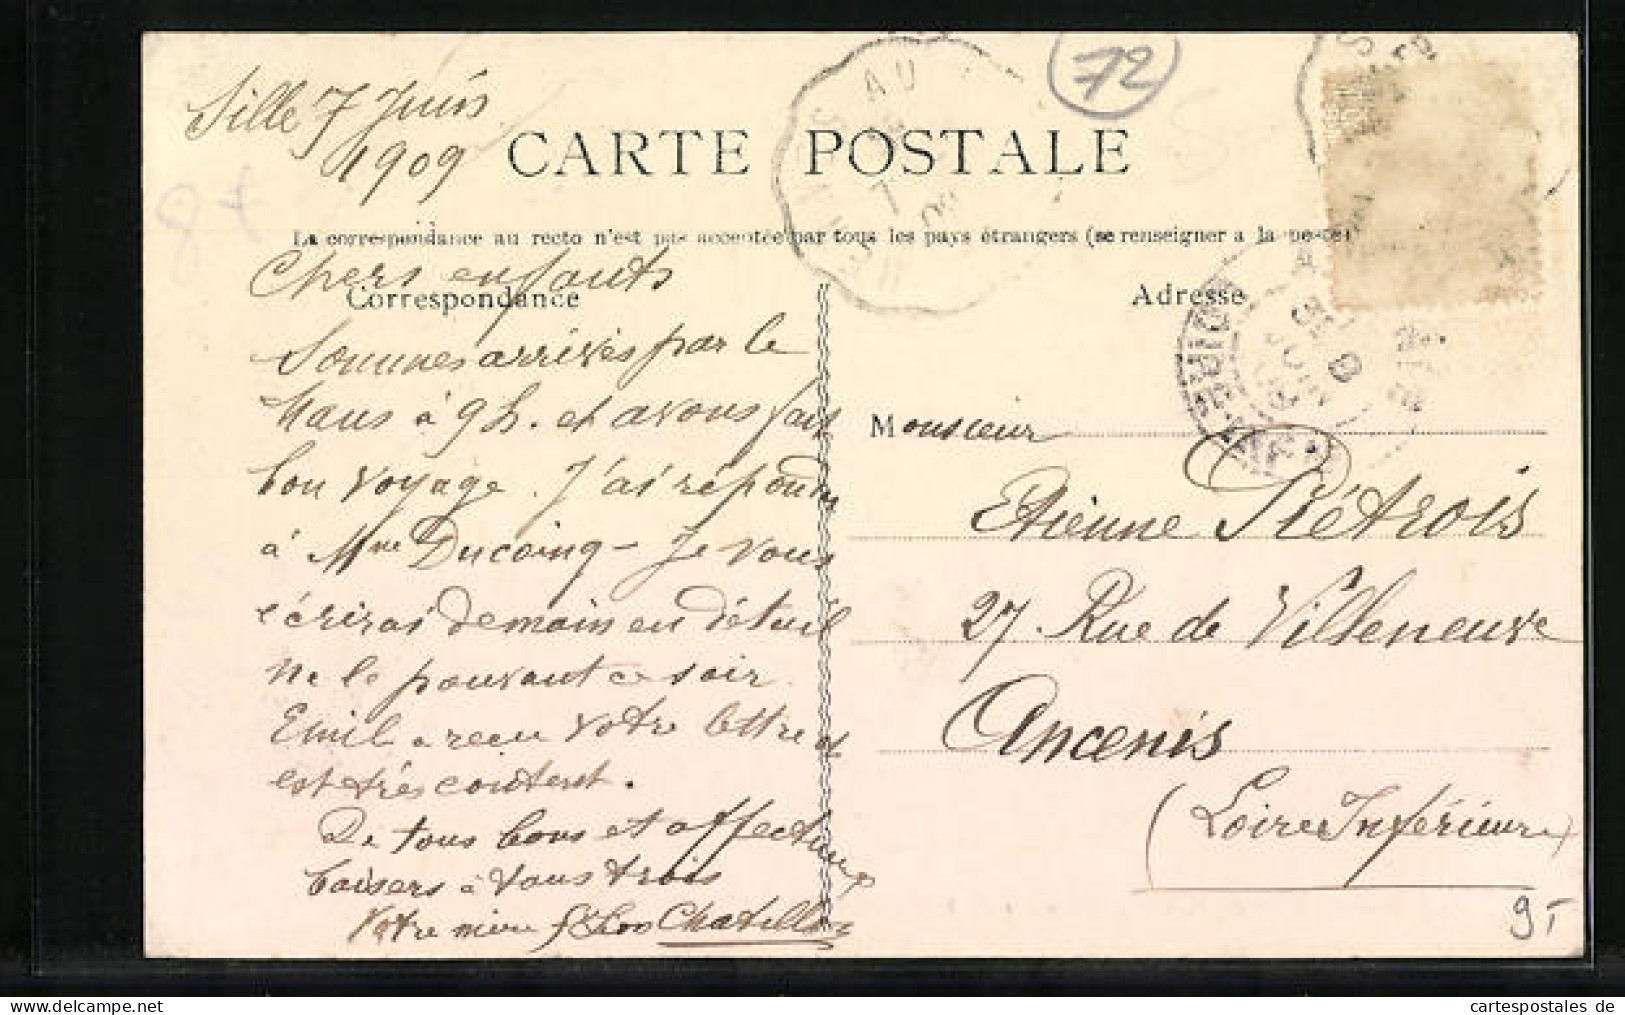 Sillé 7 Juin
1909
72
CARTE POSTALE
La correspondance au recto n'est pas acceptée par tous les pays étrangers (se renseigner a la poste)
Correspondance
Chers enfants
Sommes arrivés par le
Mans à 9 h. et avons fait
bon voyage. J'ai répondu
à Mme Ducoing - Je vous
écrirai demain en détail
ne le pouvant ce soir
Emile a reçu votre lettre et
est très content.
De tous bons et affectueux
baisers à vous trois
Votre mère Chatillon
Adresse
Monsieur
Etienne Piétrois
27 Rue de Villeneuve
Ancenis
(Loire Inférieure)
9T
cartespostales de